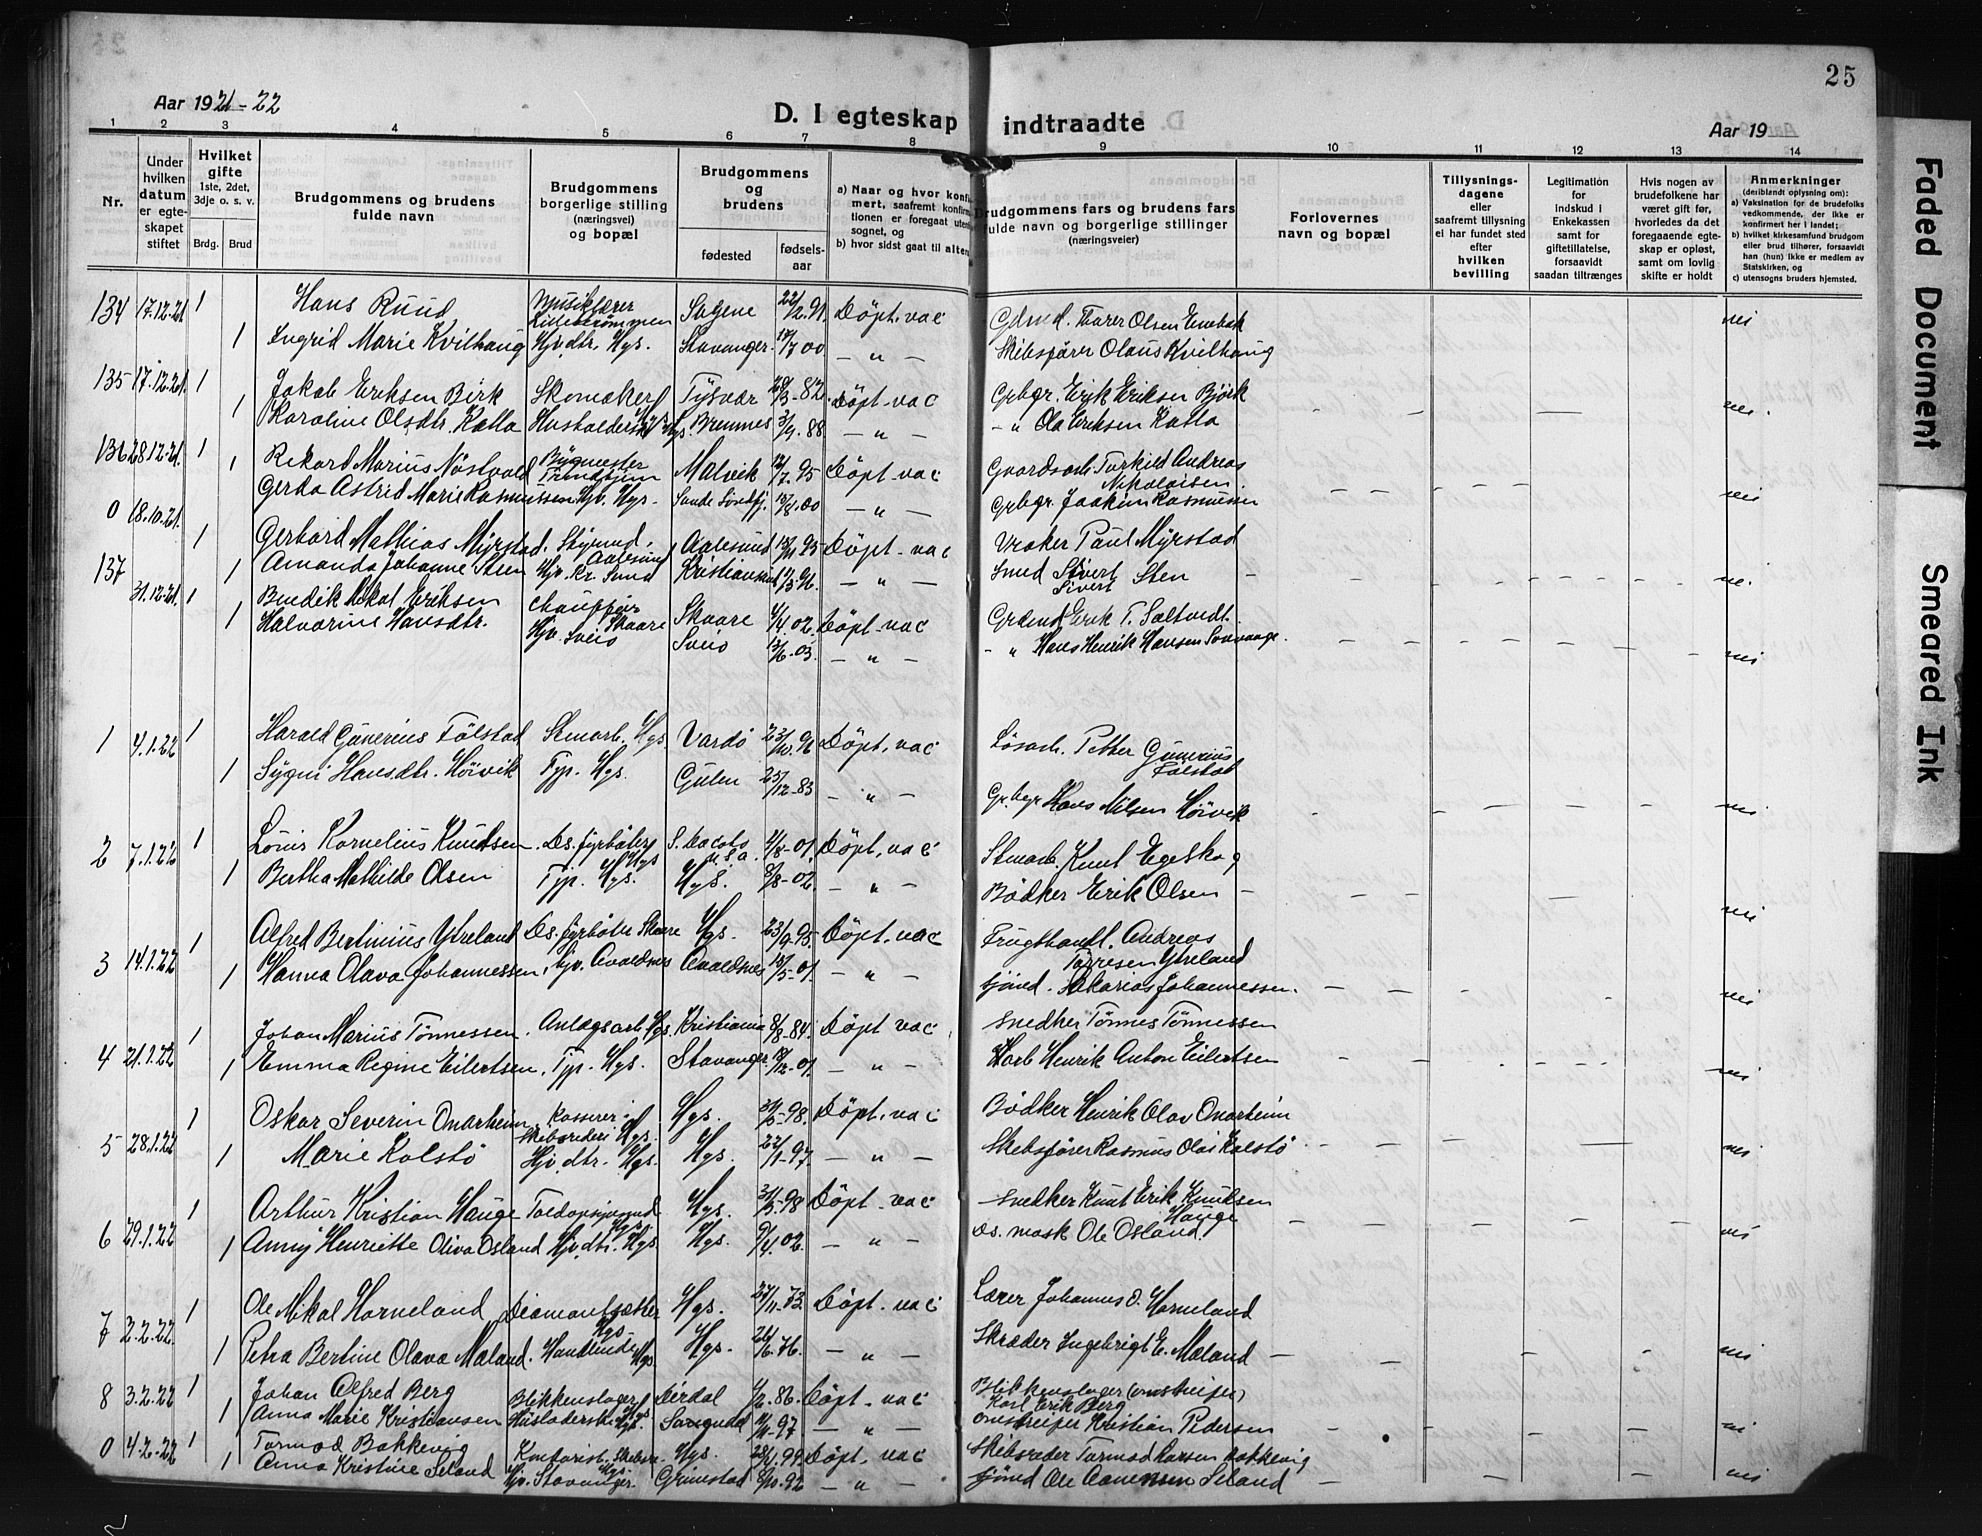 25
Aar 1921-22
D. I egteskap indtraadte
Aar 19
1 2 3 4 5 6 7 8 9 10 11 12 13 14
Nr.
Under hvilken datum er egteskapet stiftet
Hvilket gifte 1ste, 2det, 3dje o. s. v.
Brdg. Brud
Brudgommens og brudens fulde navn
Brudgommens borgerlige stilling (næringsvei) og bopæl
Brudgommens og brudens
fødested
fødselsaar
a) Naar og hvor konfirmert, saafremt konfirmationen er foregaat utenfor sognet, og
b) hvor sidst gaat til alters
Brudgommens fars og brudens fars fulde navn og borgerlige stillinger (næringsveier)
Forlovernes navn og bopæl
Tillysningsdagene eller saafremt tillysning ei har fundet sted efter hvilken bevilling
Legitimation for indskud i Enkekassen samt for giftetillatelse, forsaavidt saadan tiltrænges
Hvis nogen av brudefolkene har været gift før, hvorledes da det foregaaende egteskap er opløst, samt om lovlig skifte er holdt
Anmerkninger (deriblandt oplysning om):
a) Vaksination for de brudefolks vedkommende, der ikke er konfirmert her i landet;
b) hvilket kirkesamfund brudgom eller brud tilhører, forsaavidt han (hun) ikke er medlem av Statskirken, og
c) utensogns bruders hjemsted.
134 17.12.21 1 Hans Ruud Musiklærer Lillestrømmen Sagene 22/2.91 Døpt. vac Gdmd. Thorer Olsen Enebak nei
1 Ingrid Marie Kvilhaug Hjv. dtr. Hgs. Stavanger 17/7 00 — " — Skibsfører Olaus Kvilhaug
135 17.12.21 1 Jakob Eriksen Birk Skomaker Tysvær 28/3-82 Døpt vac Grbgr. Erik Eriksen Bjørk nei
1 Karoline Olsdtr. Katla Husholderske Hgs. Bremnes 3/9.88 — " — — " Ola Eriksen Katla
136 28.12.21 1 Rikard Marius Nøstvold Bygmester Trondhjem Malvik 12/7.95 Døpt vac Gaardsarb. Torkild Andreas Nikolaisen nei
1 Gerda Astrid Marie Rasmussen Hjv. Hgs. Sande Søndfj. 13/8.00 — " — Grbgr. Joakim Rasmussen
0 18.10.21 1 Gerhard Mathias Myrstad Styrmd. Aalesund Aalesund 13/11 95 Døpt-vac Vraker Paul Myrstad nei
137 1 Amanda Johanne Sten Hjv. Kr. Sund Kristiansund 11/3.96 — " — Smed Sivert Sten
Sivert
31.12.21 1 Bendik Mikal Eriksen Chauffør Skaare Skaare 4/4.02 Døpt-vac Grdmd Erik T. Saltvedt nei
1 Halvarine Hansdtr. Hjv. Sveio Sveio 13/6-03 — " — — " Hans Henrik Hansen
1 4.1.22 1 Harald Gunerius Følstad Stmarb. Hgs Vardø 23/10.96 Døpt, vac Løsarb. Petter Gunerius Følstad nei
1 Sygni Hansdtr. Høivik Tjp. Hgs. Gulen 25/12-83 — " — Gr.bgr Hans Nilsen Høivik
2 7.1.22 1 Louis Kornelius Knudsen Ds. fyrbøter Hgs S. Dacota U.S.A. 4/8-01 Døpt, vac Stmarb. Knut Egeskog nei
1 Bertha Mathilde Olsen Tjp. Hgs. Hgs. 8/8-02 — " — Bødker Erik Olsen
3 14.1.22 1 Alfred Bertinius Ytreland Ds. fyrbøter Skaare Hgs. 23/9-95 Døpt, vac Frugthandl. Andreas Torresen Ytreland nei
1 Hanna Olava Johannessen Hjv. Avaldsnes Avaldsnes 15/5-01 — " — Sjømd. Sakarias Johannessen
4 21.1.22 1 Johan Marius Tønnessen Anlægsarb Hgs. Kristiania 8/8-84 Døpt vac Snedker Tønnes Tønnessen nei
1 Emma Regine Eilertsen Tjp. Hgs. Stavanger 12/12-01 — " — Henrik Anton Eilertsen
5 28.1.22 1 Oskar Severin Onarheim Kasserer i Skibsrederi Hgs. Hgs. 31/3-98 Døpt. vac Bødker Henrik Olav Onarheim nei
1 Marie Kolstø Hjv. dtr. Hgs. Hgs. 22/1-97 — " — Skibsfører Rasmus Olai Kolstø
6 29.1.22 1 Arthur Kristian Hauge Toldopsynsmd Hgs. Hgs. 31/3-98 Døpt-vac Snedker Knut Erik Knudsen Hauge nei
1 Anny Henriette Oliva Osland Hjv. dtr. Hgs. Hgs. 9/4.02 — " — Ds. mask Ole Osland
7 2.2.22 1 Ole Mikal Horneland Diamantsætter Hgs. Hgs. 27/11-73 Døpt. vac Lærer Johannes O. Horneland nei
1 Petra Bertine Olava Maland Handlende Hgs Hgs. 26/6.76 — " — Skræder Ingebrigt E. Maland
8 3.2.22 1 Johan Alfred Berg Blikkenslager Hgs Lerdal 1/2.86 Døpt. vac Blikkenslager (omstreifer) Karl Erik Berg nei
1 Anna Marie Kristiansen Husholderske Hgs Songndal 11/11-97 — " — Omstreifer Kristian Pedersen
0 4.2.22 1 Tormod Bakkevig Kontorist. Skibsr. Hgs. Hgs. 28/4.99 Døpt vac Skibsreder Tormod Larsen Bakkevig nei
1 Anna Kristine Seland Hjv. Stavanger Grimstad 6/10.92 — " — Sjømd Ole Aanensen Seland
Faded Document
Smeared Ink